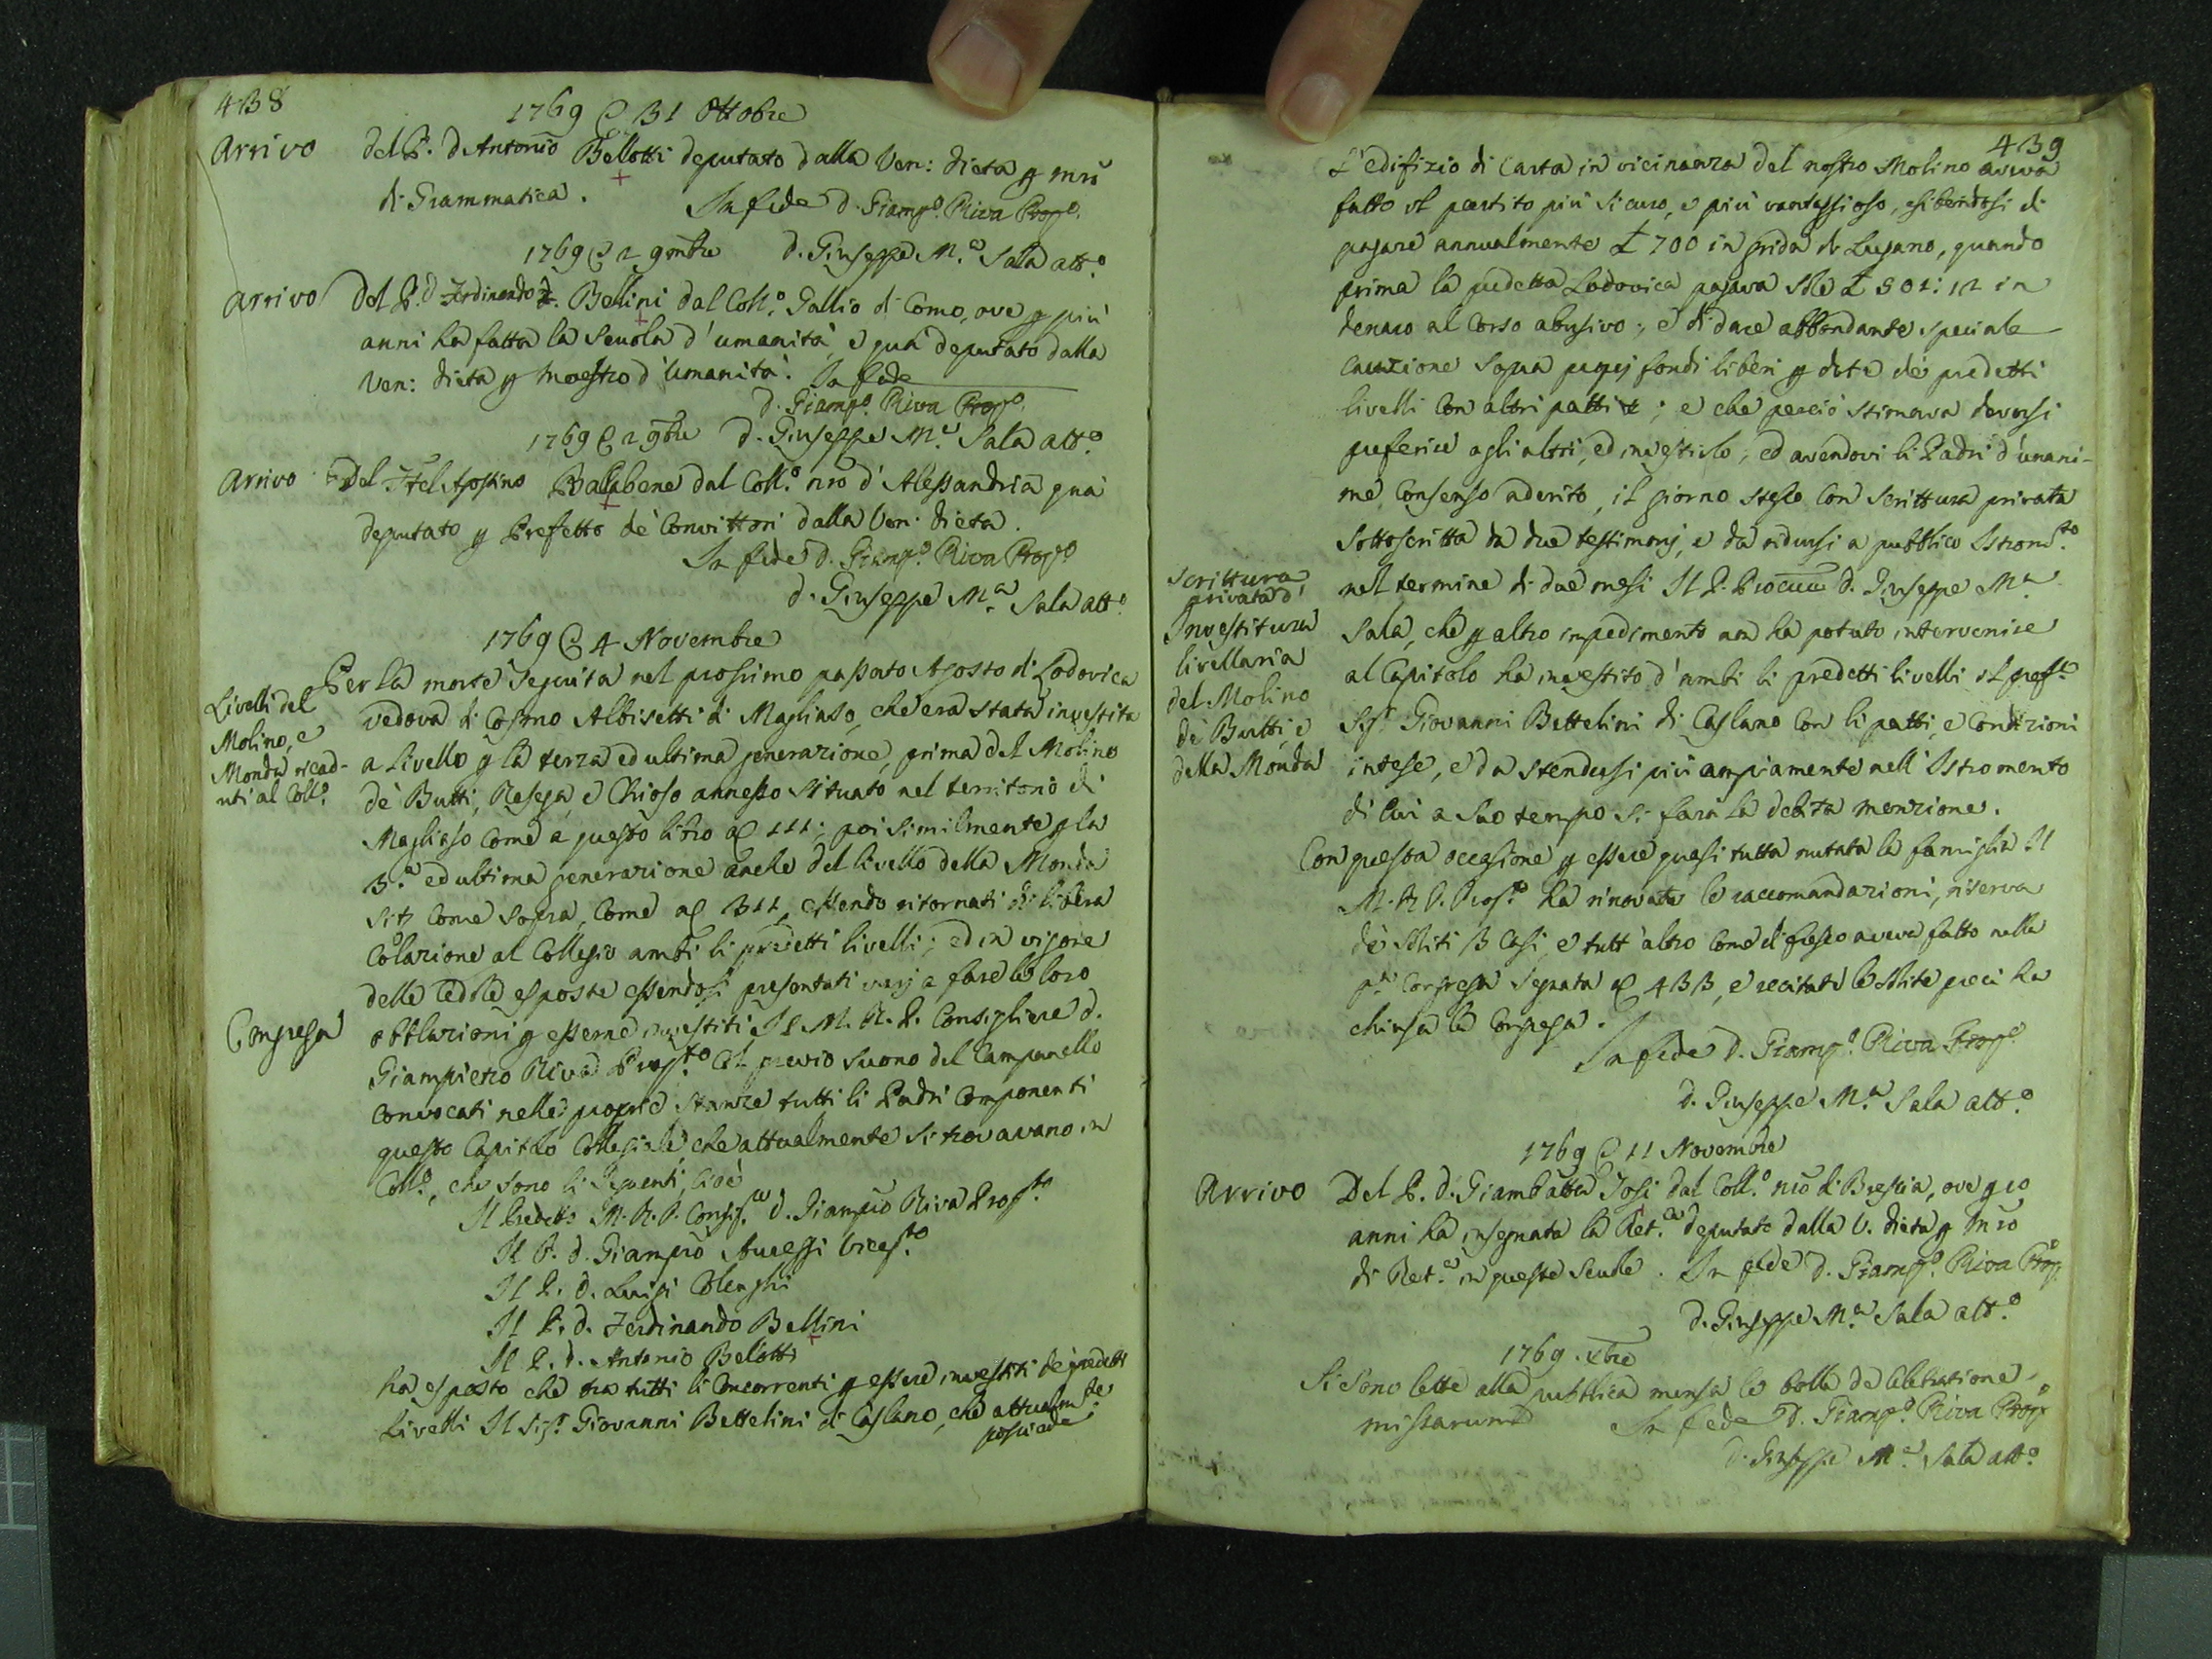 438
1769 @ 31 Ottobre
Arrivo Del P. D. Antonio Bellotti deputato dalla Ven: Dieta p mrõ
di Grammatica. In fede D. Giamp.o Riva Prop.o
1769 @ 2 9mbre D. Giuseppe M.a Sala att.o
Arrivo Del P. D. Ferdinando Bellini dal Coll.o Gallio di Como, ove p più
anni ha fatta la Scuola d'umanità, e quà deputato dalla
Ven: Dieta p Maestro d'Umanità. In fede
D. Giamp.o Riva Prop.o
1769 @ 2 9bre D. Giuseppe M.a Sala att.o
Arrivo Del Frel Agostino Balabene dal Coll.o nrõ d'Alessandria quà
deputato p Prefetto de' Convittori dalla Ven. Dieta.
In fede D. Giamp.o Riva Prop.o
D. Giuseppe M.a Sala att.o
1769 @ 4 Novembre
Per la morte seguita nel prossimo passato Agosto di Lodovica
Livelli del
Molino, e
Monda ricad-
uti al Coll.o
vedova di Cosmo Albisetti di Magliaso, che era stata investita
a livello p la terza ed ultima generazione, prima del Molino
de' Butti, Resega, e Chioso annesso situato nel territorio di
Magliaso come a questo libro @ 111; poi similmente p la
3.a ed ultima generazione anche del livello della Monda
sit.a come sopra, come @ 311, essendo ritornati di libera
Colazione al Collegio ambi li predetti livelli; ed in vigore
delle Cedole esposte essendosi presentati varj a fare le loro
Congrega obblazioni p esserne investiti Il M. R. P. Consigliere D.
Giampietro Riva Prop.to col previo suono del Campanello
convocati nelle proprie stanze tutti li Padri componenti
questo Capitolo Collegiale, che attualmente si trovavano in
Coll.o, che sono li seguenti, cioè
Il Predetto M. R. P. Consig.re D. Giamprõ Riva Prop.to
Il P. D. Giamprõ Vicep.to
Il P. D. Luigi
Il P. D. Ferdinando Bellini
Il P. D. Antonio Belotti
ha esposto che tra tutti li Concorrenti p essere investiti de' predetti
Livelli Il Sig.r Giovanni Bettelini di Caslano, che attualm.te
possiede
439
L'edifizio di Carta in vicinanza del nostro Molino aveva
fatto il partito più sicuro, e più vantaggioso, esibendosi di
pagare annualmente £ 700 in grida di Lugano, quando
prima la predetta Lodovica pagava sole £ 501:12 in
denaro al Corso abusivo; e di dare abbondante speciale
cauzione sopra proprj fondi liberi p dote de' predetti
livelli con altri patti &; e che perciò stimava doversi
preferire agli altri, ed investirlo; ed avendovi li Padri d'unani-
me consenso aderito, il giorno stesso con scrittura privata
sottoscritta da due testimonj, e da ridursi a pubblico Istrom.to
Scrittura
privata d'
Investitura
livellaria
del Molino
de' Butti, e
della Monda
nel termine di due mesi Il P. Procur.e D. Giuseppe M.a
Sala, che p altro impedimento non ha potuto intervenire
al Capitolo ha investito d'ambi li predetti livelli il pref.to
Sig.r Giovanni Bettelini di Caslano con li patti, e condizioni
intese, e da stendersi più ampiamente nell'Istromento
di cui a suo tempo si farà la debita menzione.
Con questa occasione p essere quasi tutta mutata la famiglia Il
M. R. P. Prop.to ha rinovate le raccomandazioni, riserva
de' soliti 3 Casi, e tutt'altro come di fresco aveva fatto nella
Congrega segnata @ 433, e recitate le solite preci ha
chiusa la Congrega.
In fede D. Giamp.o Riva Prop.o
D. Giuseppe M.a Sala att.o
1769 @ 11 Novembre
Arrivo Del P. D. Giambatta Josi dal Coll.o nrõ di Brescia, ove p 10
anni ha insegnata la Ret.ca deputato dalla V. Dieta p mrõ
di Ret.a in queste Scuole. In fede D. Giamp.o Riva Prop.o
D. Giuseppe M.a Sala att.o
1769. Xbre
Si sono lette alla pubblica mensa le bolle de celebratione
missarum In fede D. Giamp.o Riva Prop.o
D. Giuseppe M.a Sala att.o